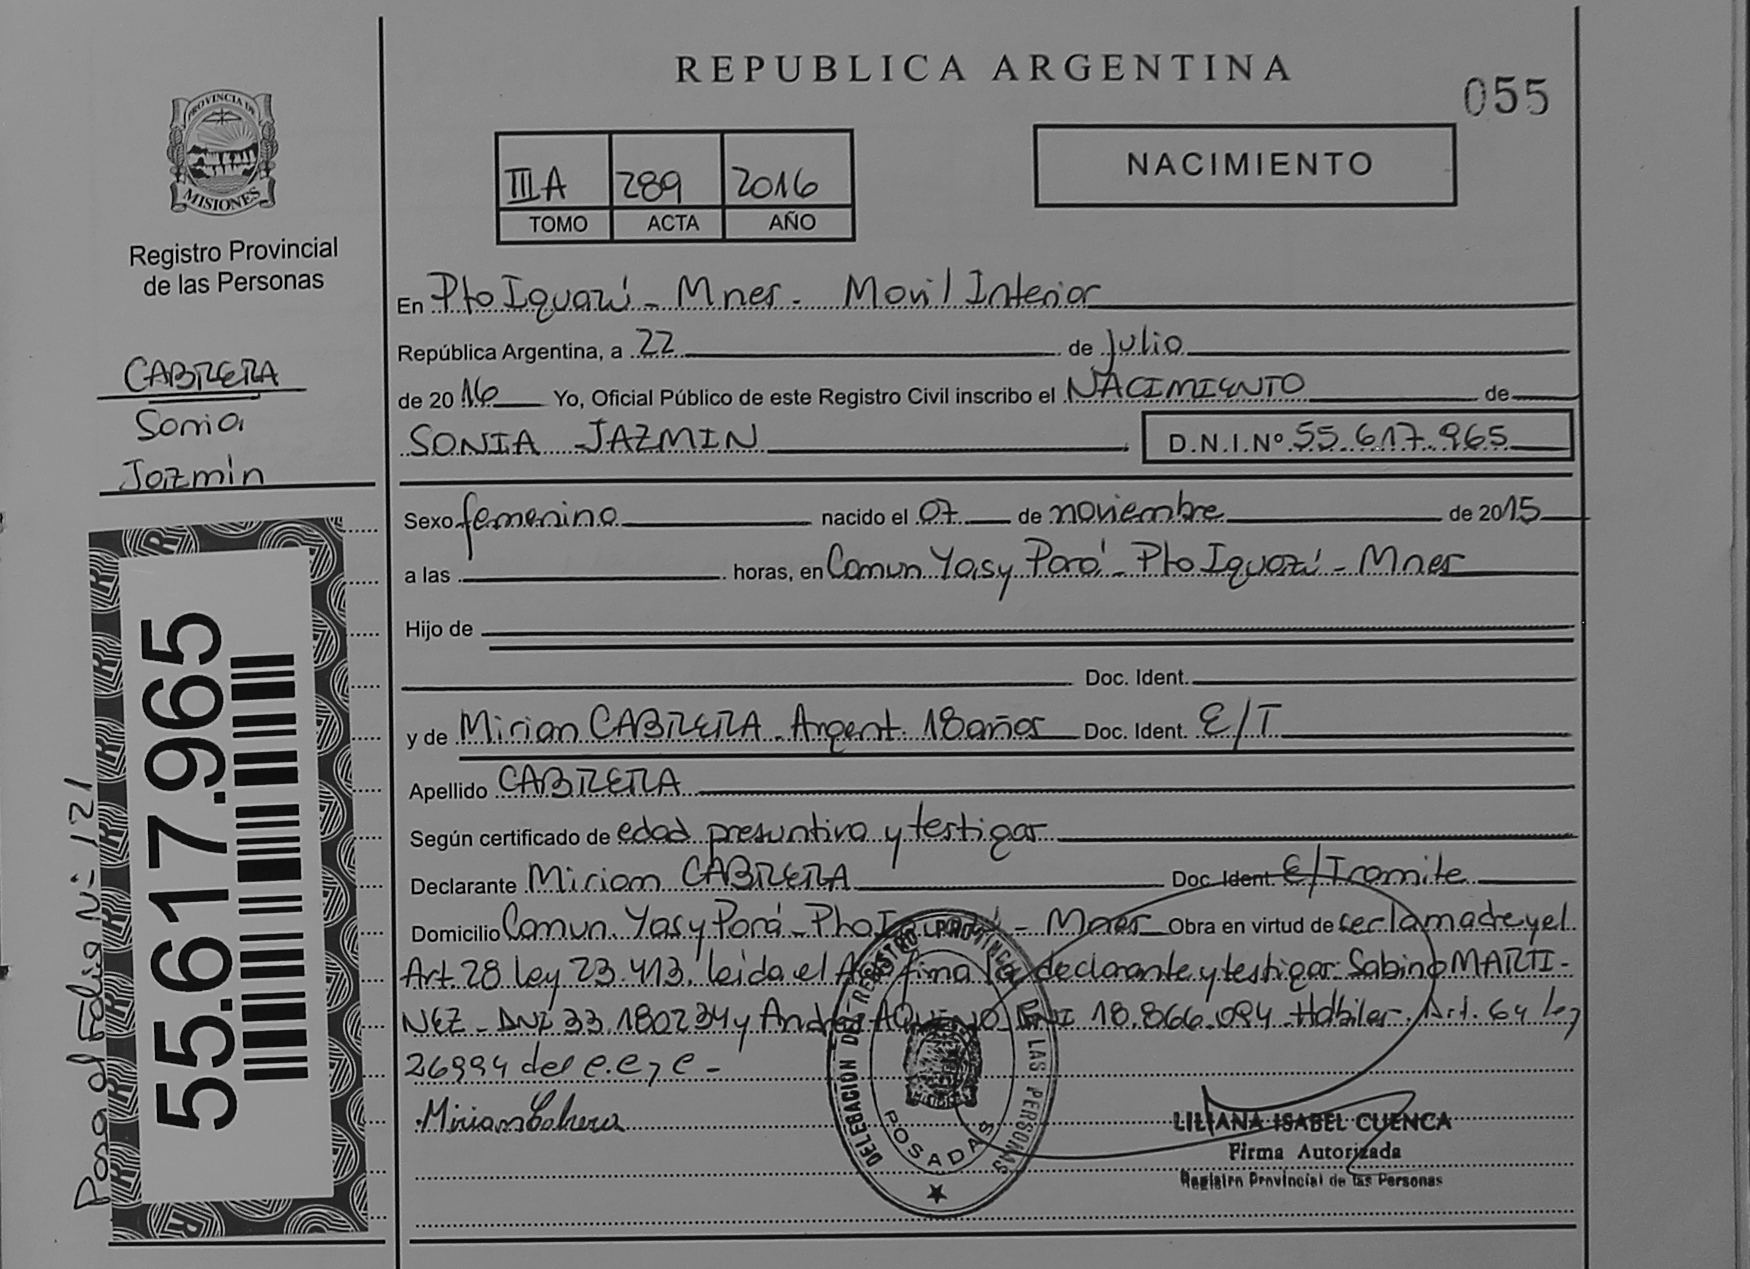 REPUBLICA ARGENTINA
055
PROVINCIA DE
MISIONES
Registro Provincial
de las Personas
III A 289 2016
TOMO ACTA AÑO
NACIMIENTO
CABRERA
Sonia
Jazmin
55.617.965
Pasa al Folio Nº 121
En Pto Iguazú - Mnes - Movil Interior
República Argentina, a 22 de Julio
de 2016 Yo, Oficial Público de este Registro Civil inscribo el NACIMIENTO de
SONIA JAZMIN D.N.I.Nº 55.617.965
Sexo femenino nacido el 07 de noviembre de 2015
a las horas, en Comun Yasy Porá - Pto Iguazú - Mnes
Hijo de
Doc. Ident.
y de Mirian CABRERA - Argent. 18 años Doc. Ident. E/T
Apellido CABRERA
Según certificado de edad presuntiva y testigos
Declarante Miriam CABRERA Doc. Ident. E/Tramite
Domicilio Comun. Yasy Porá - Pto I - Mnes Obra en virtud de madre y el
Art. 28 ley 23.413. leida el firma declarante y testigos Sabino MARTI-
NEZ - DNI 33.180234 y Andres AQUINO DNI 18.866.094 Habiles. Art. 64 ley
26994 del
Miriam Cabrera
DELEGACIÓN DEL REGISTRO PROVINCIAL DE LAS PERSONAS
POSADAS
LILIANA ISABEL CUENCA
Firma Autorizada
Registro Provincial de las Personas